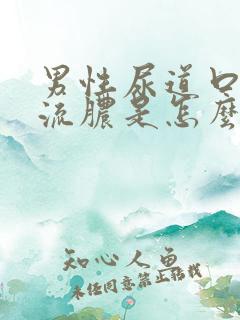 男性尿道口
流膿是怎麼
知心人鱼
未经同意禁止转载